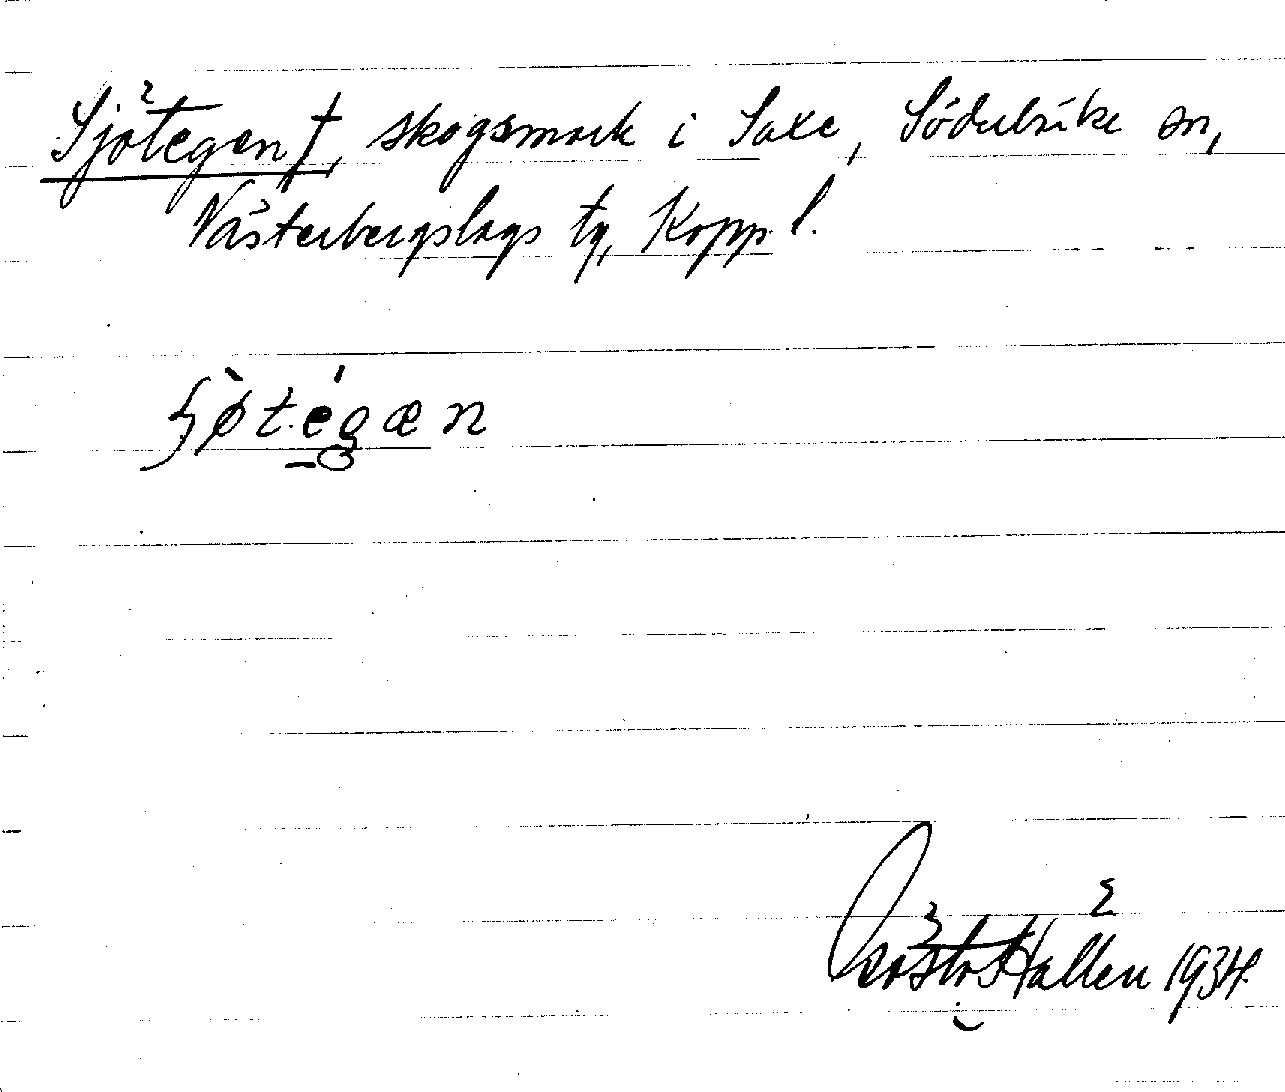 Sjötegen †, skogsmark i Saxe, Söderbärke sn,
Västerbergslags tg, Kopp. l.
Gösta Hallén 1934.